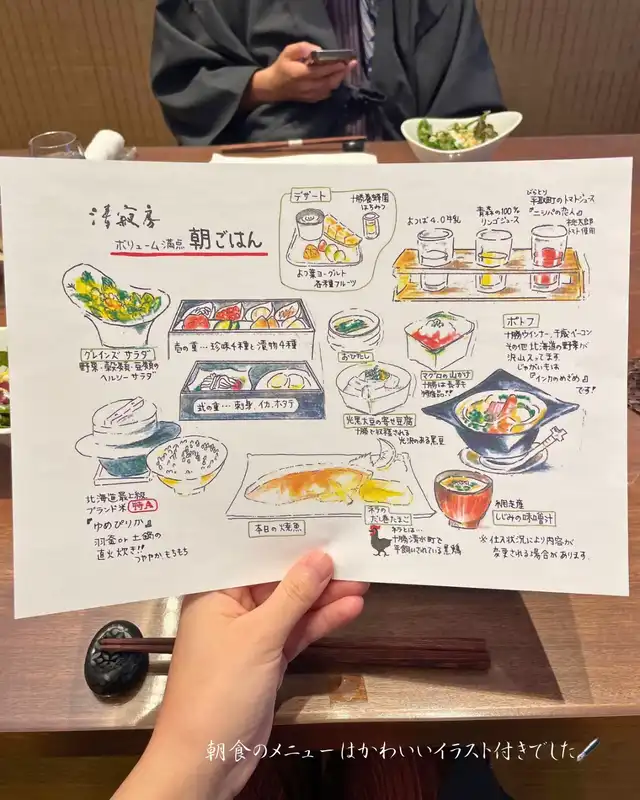 清寂房
ボリューム満点 朝ごはん
デザート
十勝養蜂園
はちみつ
よつ葉ヨーグルト
各種フルーツ
よつば4.0牛乳
青森の100%
リンゴジュース
びらとり
平取町のトマトジュース
『ニシパの恋人』
桃太郎
トマト使用
グレインズサラダ
野菜・穀類・豆類の
ヘルシーサラダ
壱の重…珍味4種と漬物4種
弐の重…刺身、イカ、ホタテ
おひたし
マグロの山かけ
十勝は長芋も
特産品!!
光黒大豆の寄せ豆腐
十勝で収穫される
光沢のある黒豆
ポトフ
十勝ウインナー、千歳ベーコン
その他 北海道の野菜が
沢山入ってます
じゃがいもは
『インカのめざめ』
です!
北海道最上級
ブランド米 特A
『ゆめぴりか』
羽釜or土鍋の
直火炊き!!
つややか、もちもち
本日の焼魚
ネラの
だし巻たまご
ネラとは…
十勝清水町で
平飼いされている黒鶏
網走産
しじみの味噌汁
※仕入状況により内容が
変更される場合があります。
朝食のメニューはかわいいイラスト付きでした